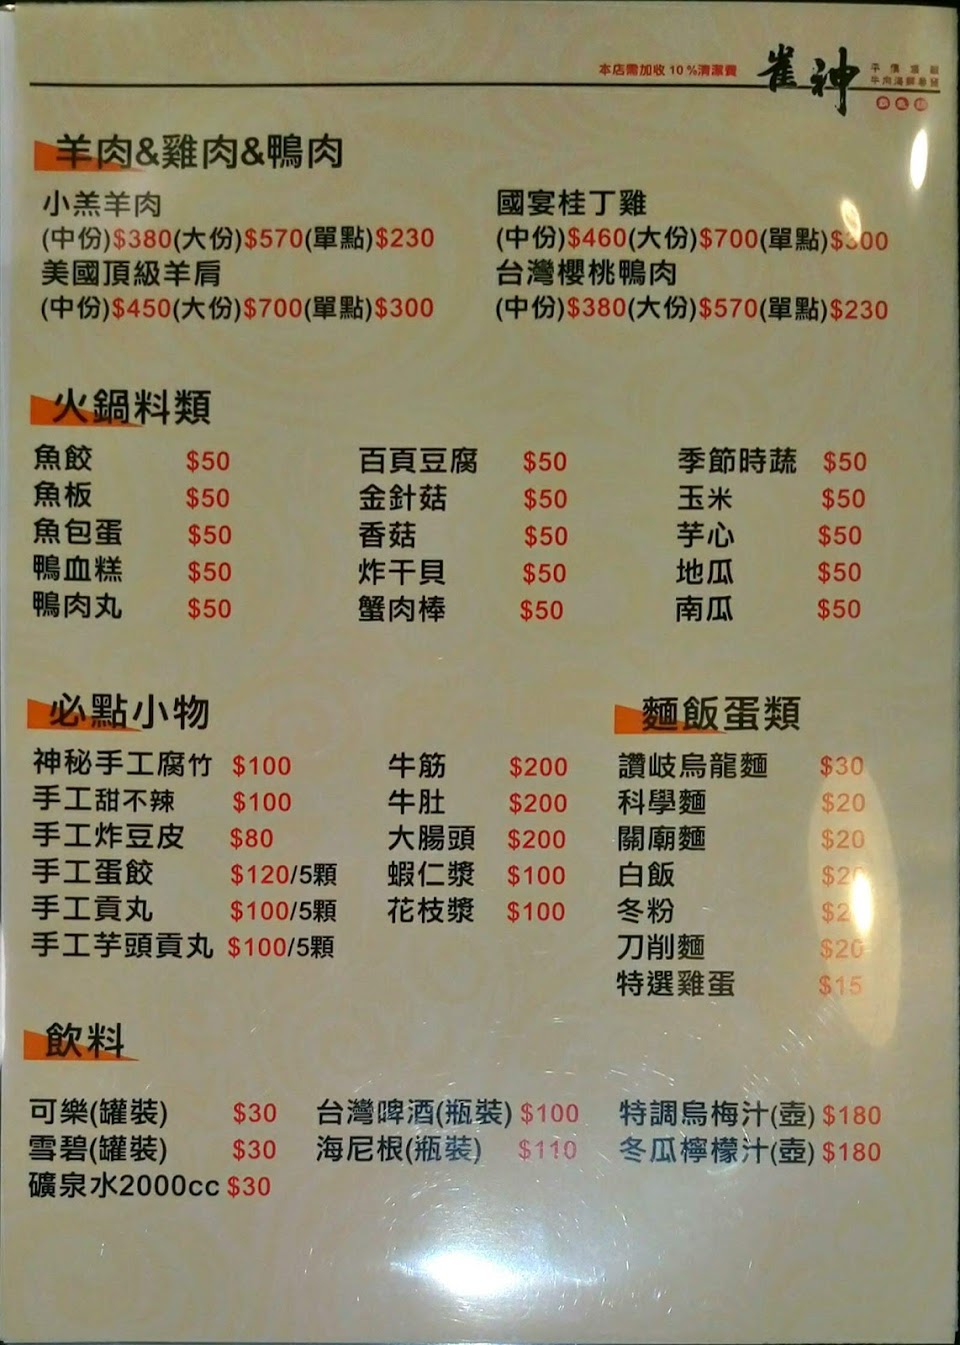 本店需加收10%清潔費
雀神
羊肉&雞肉&鴨肉
小羔羊肉
(中份)$380(大份)$570(單點)$230
美國頂級羊肩
(中份)$450(大份)$700(單點)$300
國宴桂丁雞
(中份)$460(大份)$700(單點)$300
台灣櫻桃鴨肉
(中份)$380(大份)$570(單點)$230
火鍋料類
魚餃 $50
魚板 $50
魚包蛋 $50
鴨血糕 $50
鴨肉丸 $50
百頁豆腐 $50
金針菇 $50
香菇 $50
炸干貝 $50
蟹肉棒 $50
季節時蔬 $50
玉米 $50
芋心 $50
地瓜 $50
南瓜 $50
必點小物
神秘手工腐竹 $100
手工甜不辣 $100
手工炸豆皮 $80
手工蛋餃 $120/5顆
手工貢丸 $100/5顆
手工芋頭貢丸 $100/5顆
牛筋 $200
牛肚 $200
大腸頭 $200
蝦仁漿 $100
花枝漿 $100
麵飯蛋類
讚岐烏龍麵 $30
科學麵 $20
關廟麵 $20
白飯 $20
冬粉
刀削麵 $20
特選雞蛋 $15
飲料
可樂(罐裝) $30
雪碧(罐裝) $30
礦泉水2000cc $30
台灣啤酒(瓶裝) $100
海尼根(瓶裝) $110
特調烏梅汁(壺) $180
冬瓜檸檬汁(壺) $180